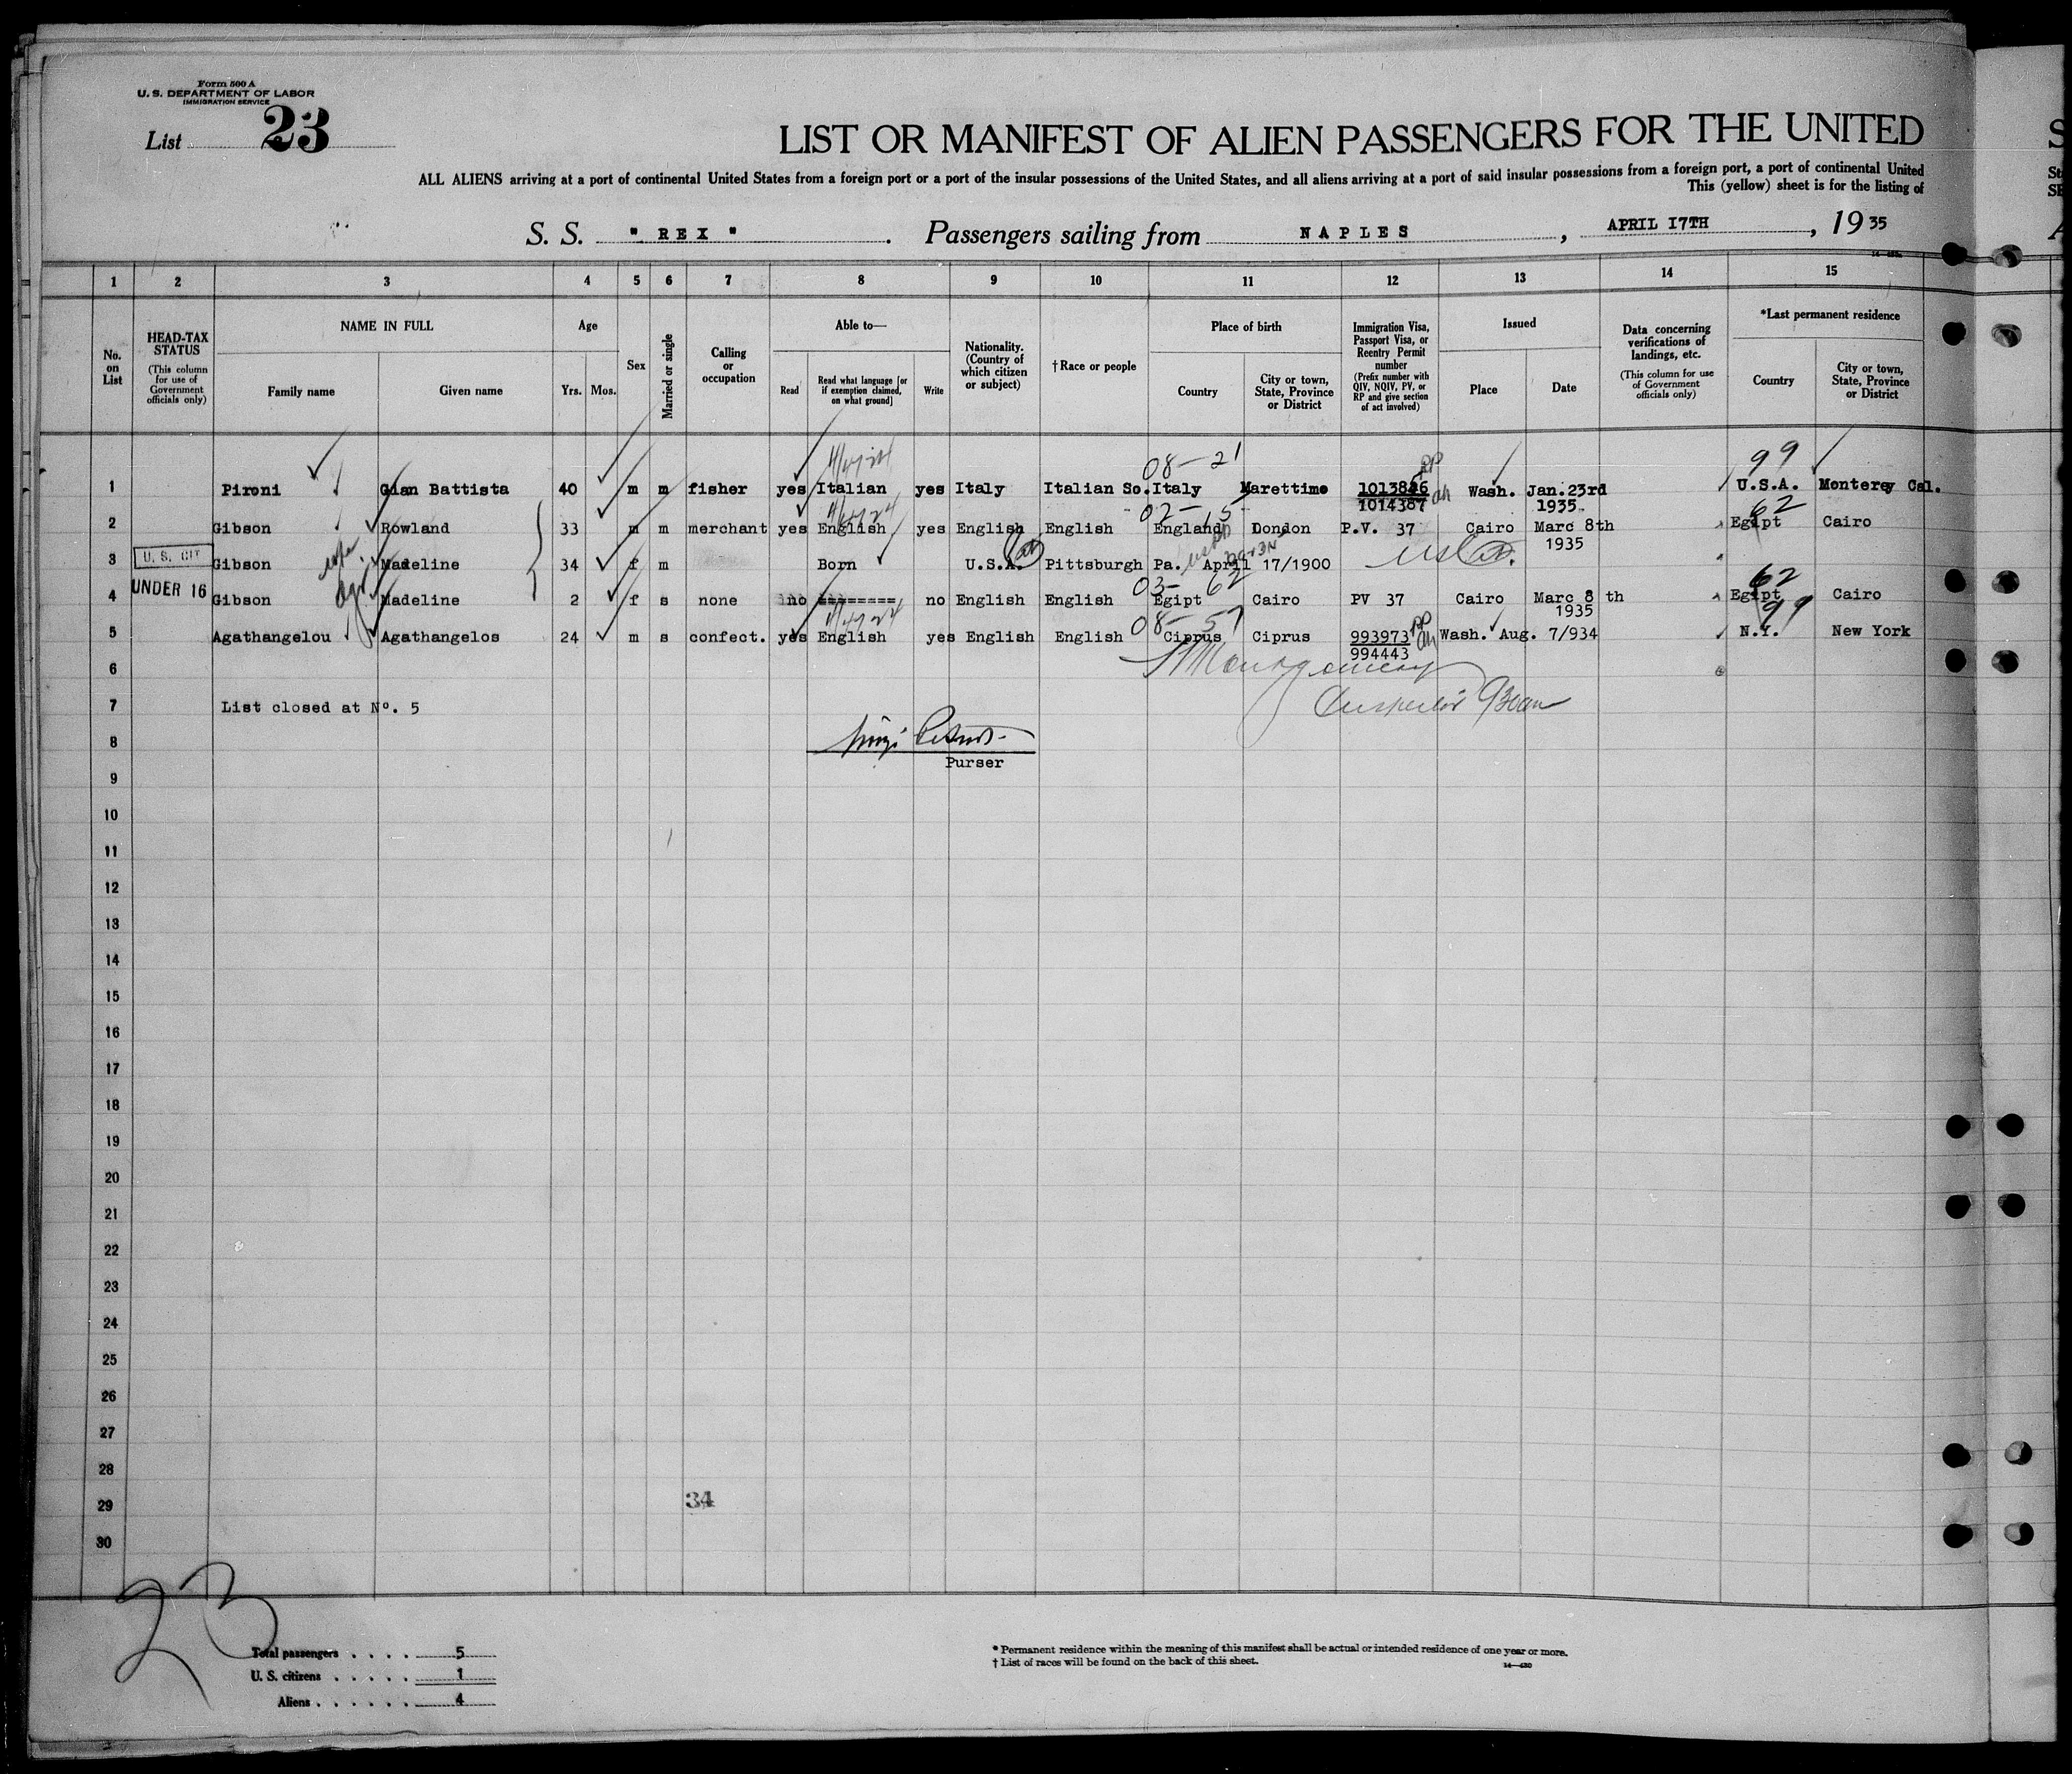 Form 500 A
U. S. DEPARTMENT OF LABOR
IMMIGRATION SERVICE
List 23
LIST OR MANIFEST OF ALIEN PASSENGERS FOR THE UNITED
ALL ALIENS arriving at a port of continental United States from a foreign port or a port of the insular possessions of the United States, and all aliens arriving at a port of said insular possessions from a foreign port, a port of continental United
This (yellow) sheet is for the listing of
S. S. " REX " . Passengers sailing from NAPLES , APRIL 17TH , 19 35
1 2 3 4 5 6 7 8 9 10 11 12 13 14 15
No. on List
HEAD-TAX STATUS (This column for use of Government officials only)
NAME IN FULL
Family name Given name
Age
Yrs. Mos.
Sex
Married or single
Calling or occupation
Able to—
Read Read what language [or if exemption claimed, on what ground] Write
Nationality. (Country of which citizen or subject)
†Race or people
Place of birth
Country City or town, State, Province or District
Immigration Visa, Passport Visa, or Reentry Permit number (Prefix number with QIV, NQIV, PV, or RP and give section of act involved)
Issued
Place Date
Data concerning verifications of landings, etc. (This column for use of Government officials only)
*Last permanent residence
Country City or town, State, Province or District
08-21 RP 99
1 Pironi Gian Battista 40 m m fisher yes Italian yes Italy Italian So. Italy Marettimo 1013826 Wash. Jan.23rd U.S.A. Monterey Cal.
1014387 1935
02-15 62
2 Gibson Rowland 33 m m merchant yes English yes English English England London P.V. 37 Cairo Marc 8th Egipt Cairo
1935
3 U. S. CIT Gibson Madeline 34 f m Born U.S.A. Pittsburgh Pa. April 17/1900
wife
03-62 62
4 UNDER 16 Gibson Madeline 2 f s none no ======== no English English Egipt Cairo PV 37 Cairo Marc 8 th Egipt Cairo
1935
08-57 RP 99
5 Agathangelou Agathangelos 24 m s confect. yes English yes English English Ciprus Ciprus 993973 Wash. Aug. 7/934 N.Y. New York
994443
6 Montgomery
7 List closed at No. 5 Inspector
8
Purser
9
10
11
12
13
14
15
16
17
18
19
20
21
22
23
24
25
26
27
28
29
34
30
23
Total passengers . . . . 5
U. S. citizens . . . . . 1
Aliens . . . . . . 4
* Permanent residence within the meaning of this manifest shall be actual or intended residence of one year or more.
† List of races will be found on the back of this sheet.
14—430